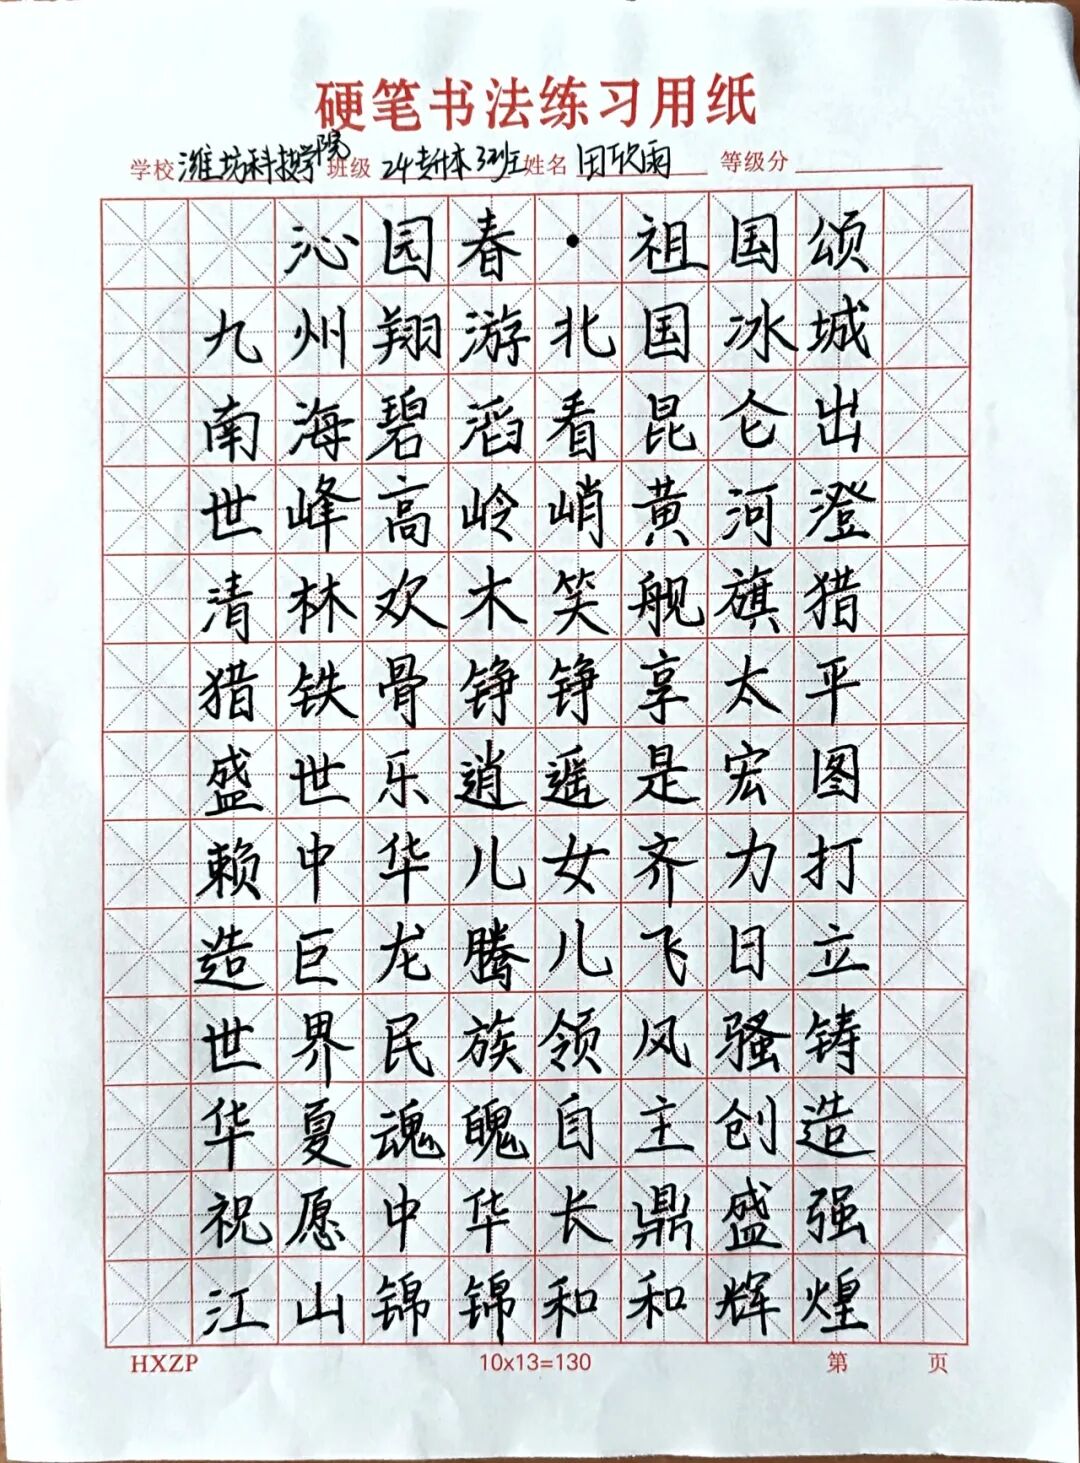 硬笔书法练习用纸
学校 潍坊科技学院 班级 24专升本3班 姓名 田欣雨 等级分
沁园春·祖国颂
九州翔游北国冰城
南海碧滔看昆仑出
世峰高岭峭黄河澄
清林欢木笑舰旗猎
猎铁骨铮铮享太平
盛世乐逍遥是宏图
赖中华儿女齐力打
造巨龙腾儿飞日立
世界民族领风骚铸
华夏魂魄自主创造
祝愿中华长鼎盛强
江山锦锦和和辉煌
HXZP 10x13=130 第 页